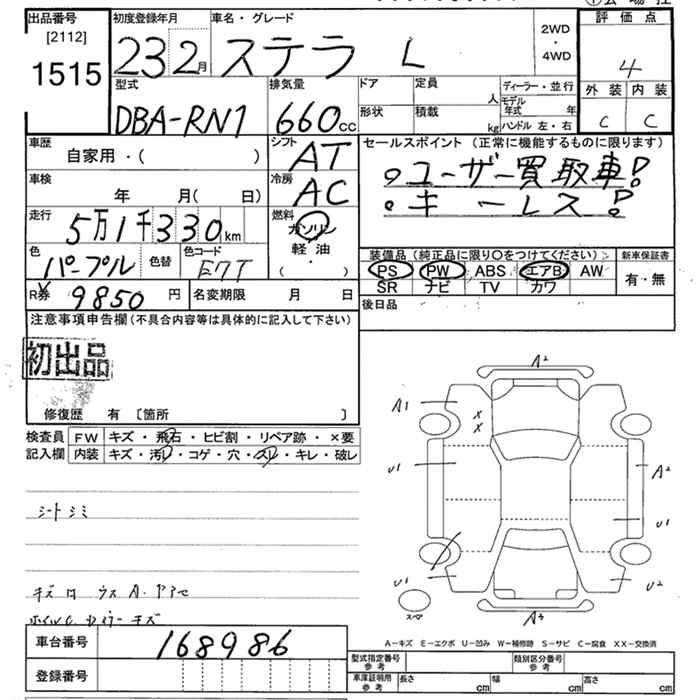 出品番号
[2112]
1515
初度登録年月
23 2月
車名・グレード
ステラ L
2WD
・
4WD
評価点
4
外装 内装
C C
型式
DBA-RN1
排気量
660cc
ドア
定員
人
形状
積載
kg
ディーラー・並行
モデル年式 年
ハンドル 左・右
車歴
自家用・( )
シフト
AT
セールスポイント (正常に機能するものに限ります)
。ユーザー買取車!
。キーレス!
車検
年 月( 日)
冷房
AC
走行
5万1千330km
燃料
ガソリン
軽油
・( )
色
パープル
色替
色コード
E7T
装備品 (純正品に限り〇をつけてください)
PS PW ABS エアB AW
SR ナビ TV カワ
新車保証書
有・無
R券
9850円
名変期限 月 日
後日品
注意事項申告欄(不具合内容等は具体的に記入して下さい)
初出品
修復歴 有 〔箇所 〕
検査員
記入欄
FW キズ・飛石・ヒビ割・リペア跡・×要
内装 キズ・汚レ・コゲ・穴・スレ・キレ・破レ
シートシミ
A2
A1
x
x
U1
A2
U1
U1
U2
スペア
A-キズ E-エクボ U-凹み W-補修跡 S-サビ C-腐食 XX-交換済
車台番号
168986
登録番号
型式指定番号
参考
類別区分番号
参考
車庫証明用
参考
長さ cm
幅 cm
高さ cm